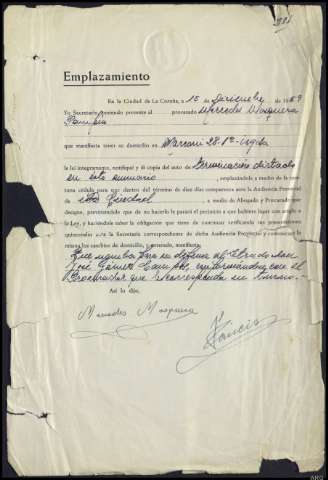 Emplazamiento
En la Ciudad de La Coruña, a 15 de Diciembre 19
Yo Secretario teniendo presente al procesado Mercedes Mosquera
que manifiesta tener su domicilio en Marconi 28-1º izqda
le leí íntegramente, notifiqué y dí copia del auto de terminación dictado
en este sumario, emplazándole y medio de la
cédula para que dentro del término de diez días comparezca ante la Audiencia Provincial
de esta Ciudad, por medio de Abogado y Procurador que
designe, previniéndole que de no hacerlo le parará el perjuicio a que hubiere lugar con arreglo a
la Ley, y haciéndole saber la obligación que tiene de continuar verificando sus presentaciones
quincenales ante la Secretaría correspondiente de dicha Audiencia Provincial y comunicar
los cambios de domicilio, y enterado, manifiesta:
Que nombra para su defensa al Letrado Don
José Gómez, conformándose con el
Procurador que le corresponda en turno.
Así lo dijo,
Mercedes Mosquera
García